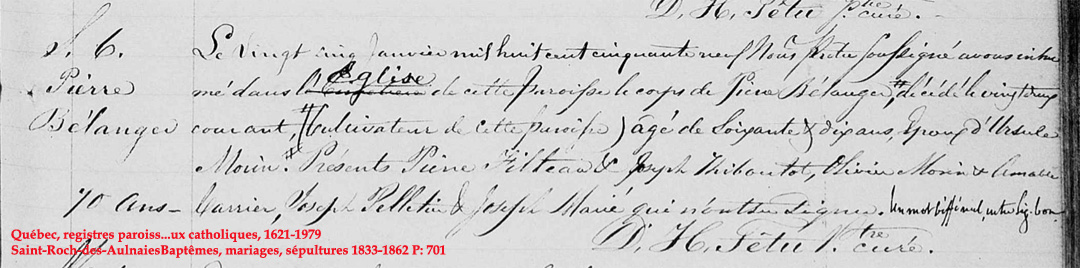 D. H. Têtu Ptre curé.
S. 6. Le vingt cinq Janvier mil huit cent cinquante neuf Nous Prêtre soussigné avons inhu
Pierre mé dans l'Eglise de cette Paroisse le corps de Pierre Bélanger, décédé le vingt deux
Bélanger courant, (Cultivateur de cette paroisse) âgé de Soixante & dix ans, Epoux d'Ursule
Morin. Présents Pierre Filteau & Joseph Thiboutot, Olivier Morin & Amable
70 ans- Carrier, Joseph Pelletier & Joseph Marié qui n'ont su signer. Un mot biffé nul, entre lig. bon.
D. H. Têtu Ptre curé.
Québec, registres paroiss...ux catholiques, 1621-1979
Saint-Roch-des-AulnaiesBaptêmes, mariages, sépultures 1833-1862 P: 701